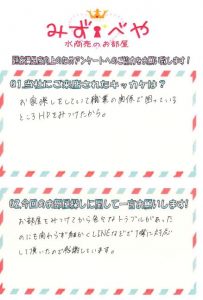 みずべや
水商売のお部屋
顧客満足度向上のためアンケートへのご協力をお願い致します!
Q1.当社にご来店されたキッカケは?
お家探しをしていて職業の関係で困っている
ところHPをみつけたから。
Q2.今回のお部屋探しに関して一言お願いします!
お部屋をみつけてから色々なトラブルがあった
のにも関わらず細かくLINEなどで丁寧に対応
して頂いたので感謝しています。